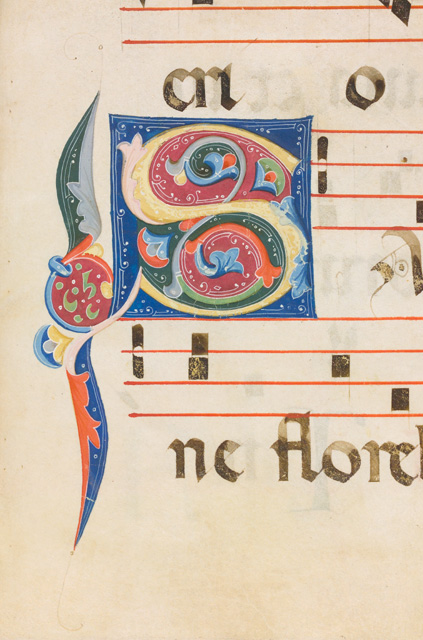 em o
S
ne flore